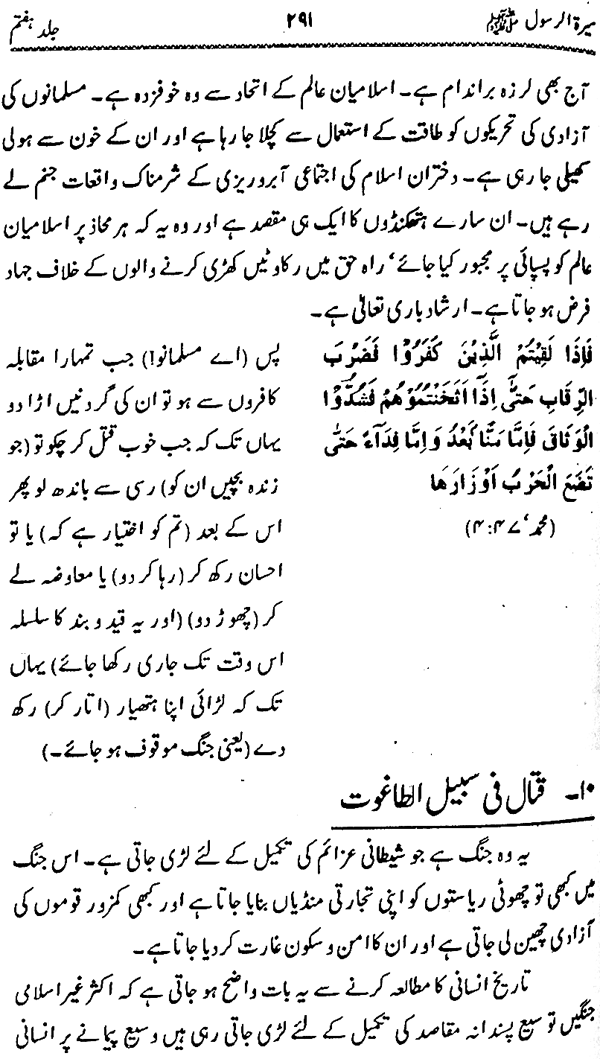 سیرۃ الرسول ﷺ ۲۹۱ جلد ہفتم
آج بھی لرزہ براندام ہے۔ اسلامیان عالم کے اتحاد سے وہ خوفزدہ ہے۔ مسلمانوں کی
آزادی کی تحریکوں کو طاقت کے استعمال سے کچلا جا رہا ہے اور ان کے خون سے ہولی
کھیلی جا رہی ہے۔ دختران اسلام کی اجتماعی آبروریزی کے شرمناک واقعات جنم لے
رہے ہیں۔ ان سارے ہتھکنڈوں کا ایک ہی مقصد ہے اور وہ یہ کہ ہر محاذ پر اسلامیان
عالم کو پسپائی پر مجبور کیا جائے‘ راہ حق میں رکاوٹیں کھڑی کرنے والوں کے خلاف جہاد
فرض ہو جاتا ہے۔ ارشاد باری تعالیٰ ہے۔
فَاِذَا لَقِيْتُمُ الَّذِيْنَ كَفَرُوْا فَضَرْبَ
الرِّقَابِ حَتّٰٓى اِذَآ اَثْخَنْتُمُوْهُمْ فَشُدُّوا
الْوَثَاقَ فَاِمَّا مَنًّا بَعْدُ وَاِمَّا فِدَآءً حَتّٰى
تَضَعَ الْحَرْبُ اَوْزَارَهَا
(محمد‘ ۴۷:۴)
پس (اے مسلمانو!) جب تمہارا مقابلہ
کافروں سے ہو تو ان کی گردنیں اڑا دو
یہاں تک کہ جب خوب قتل کر چکو تو (جو
زندہ بچیں ان کو) رسی سے باندھ لو پھر
اس کے بعد (تم کو اختیار ہے کہ) یا تو
احسان رکھ کر (رہا کر دو) یا معاوضہ لے
کر (چھوڑ دو) (اور یہ قید و بند کا سلسلہ
اس وقت تک جاری رکھا جائے) یہاں
تک کہ لڑائی اپنا ہتھیار (اتار کر) رکھ
دے (یعنی جنگ موقوف ہو جائے۔)
۱۰۔ قتال فی سبیل الطاغوت
یہ وہ جنگ ہے جو شیطانی عزائم کی تکمیل کے لئے لڑی جاتی ہے۔ اس جنگ
میں کبھی تو چھوٹی ریاستوں کو اپنی تجارتی منڈیاں بنایا جاتا ہے اور کبھی کمزور قوموں کی
آزادی چھین لی جاتی ہے اور ان کا امن و سکون غارت کر دیا جاتا ہے۔
تاریخ انسانی کا مطالعہ کرنے سے یہ بات واضح ہو جاتی ہے کہ اکثر غیر اسلامی
جنگیں توسیع پسندانہ مقاصد کی تکمیل کے لئے لڑی جاتی رہی ہیں وسیع پیمانے پر انسانی